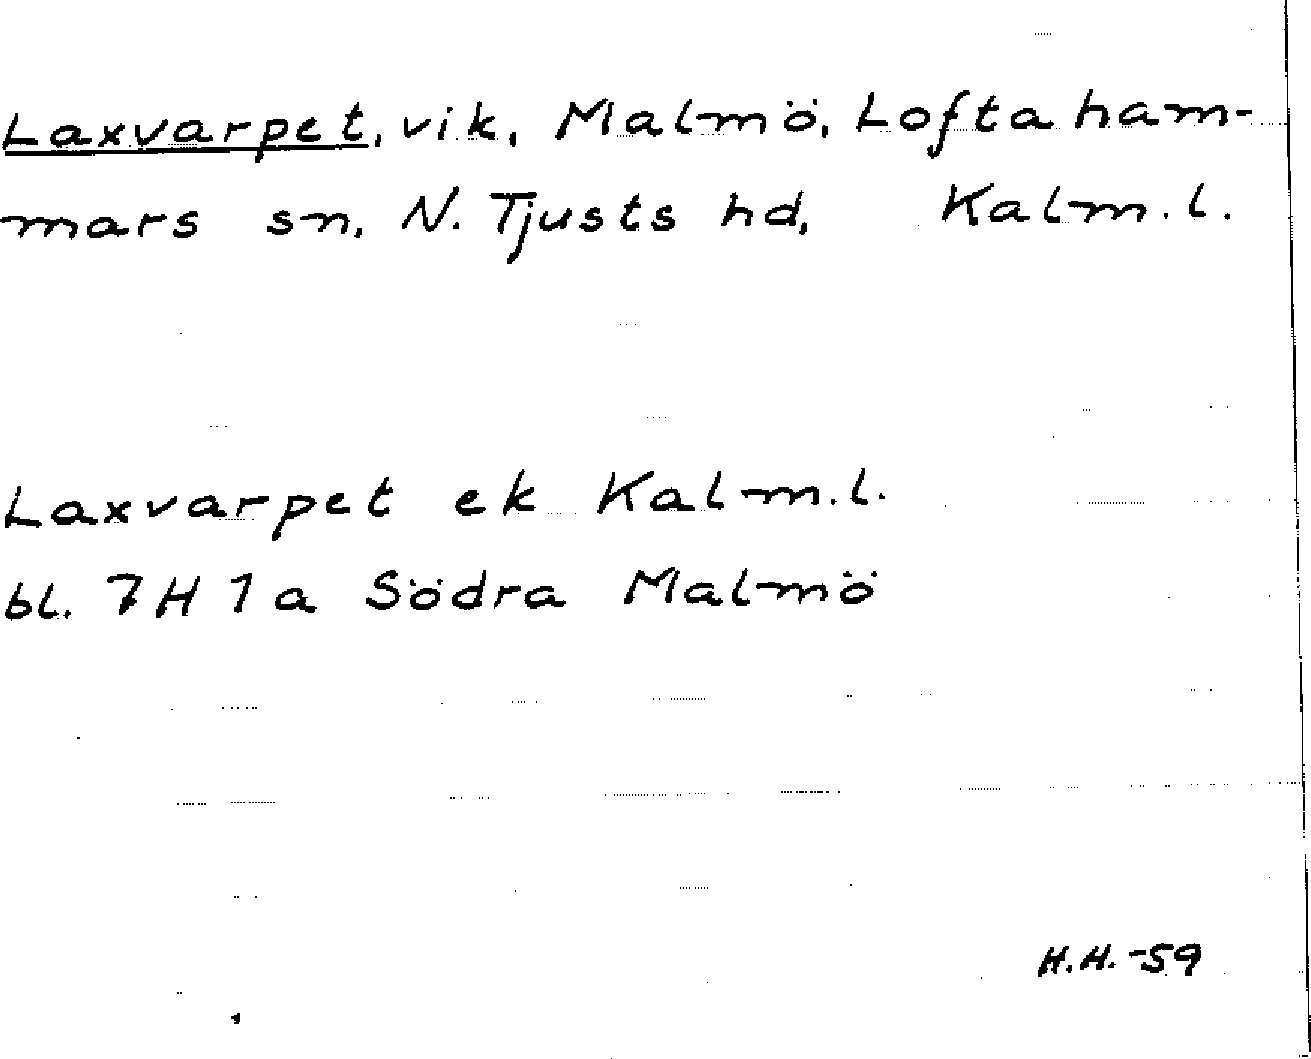 Laxvarpet, vik, Malmö, Loftaham-
mars sn, N. Tjusts hd, Kalm.l.
Laxvarpet ek Kalm.l.
bl. 7H1a Södra Malmö
H.H.-59